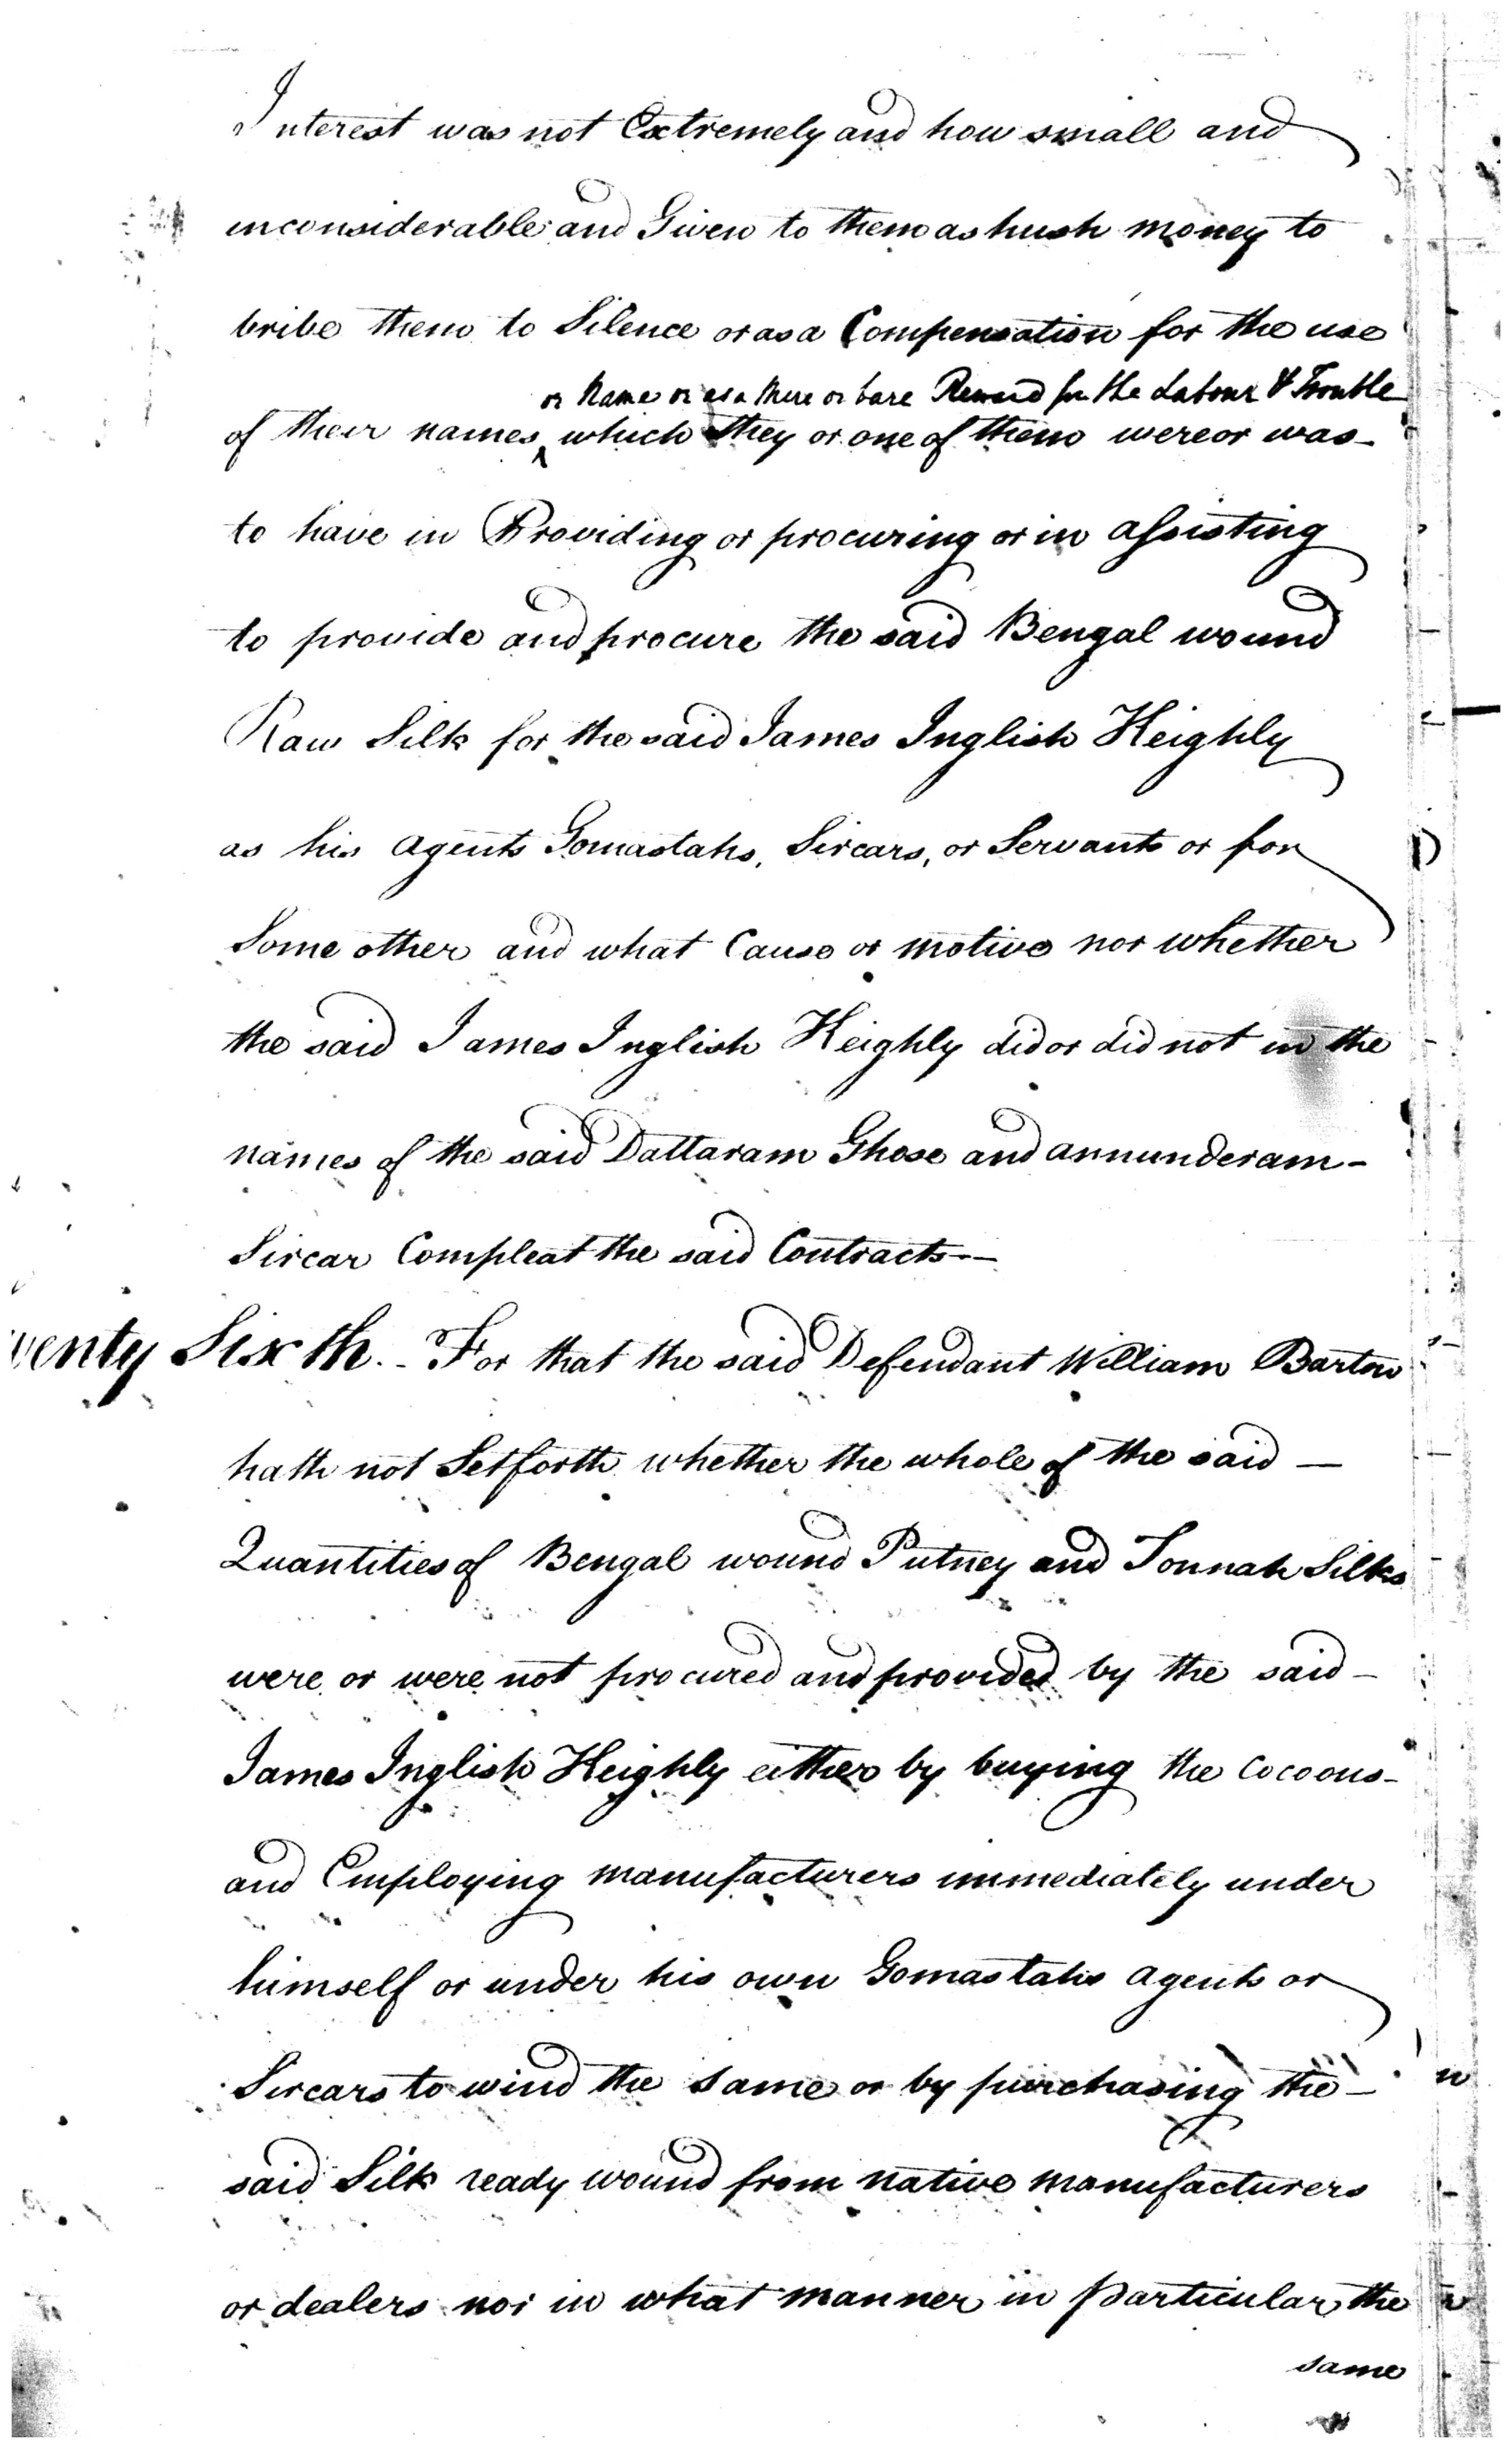 Interest was not Extremely and how small and
inconsiderable and Given to them as hush money to
bribe them to Silence or as a Compensation for the use
or Name or as a Mere or bare Reward for the Labour & Trouble
of their names which they or one of them were or was-
to have in Providing or procuring or in assisting
to provide and procure the said Bengal wound
Raw Silk for the said James Inglish Keighly
as his agents Gomastahs, Sircars, or Servants or for
Some other and what Cause or motive nor whether
the said James Inglish Keighly did or did not in the
names of the said Dattaram Ghose and annunderam-
Sircar Compleat the said Contracts.-
wenty Sixth.- For that the said Defendant William Barton
hath not Setforth whether the whole of the said -
Quantities of Bengal wound Putney and Jonnah Silks
were or were not procured and provided by the said -
James Inglish Keighly either by buying the Cocoons-
and Employing manufacturers immediately under
himself or under his own Gomastahs agents or
Sircars to wind the same or by purchasing the -
said Silk ready wound from native manufacturers
or dealers nor in what manner in particular the
same